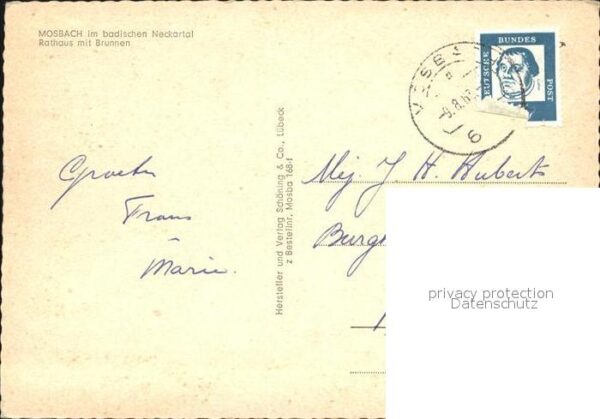 MOSBACH im badischen Neckartal
Rathaus mit Brunnen
DEUTSCHE BUNDES POST
8.61
Groeten
Frans
Marie.
Hersteller und Verlag Schöning & Co., Lübeck
z Bestellnr. Mosba 168 f
Mej. J. H. Huberts
privacy protection
Datenschutz